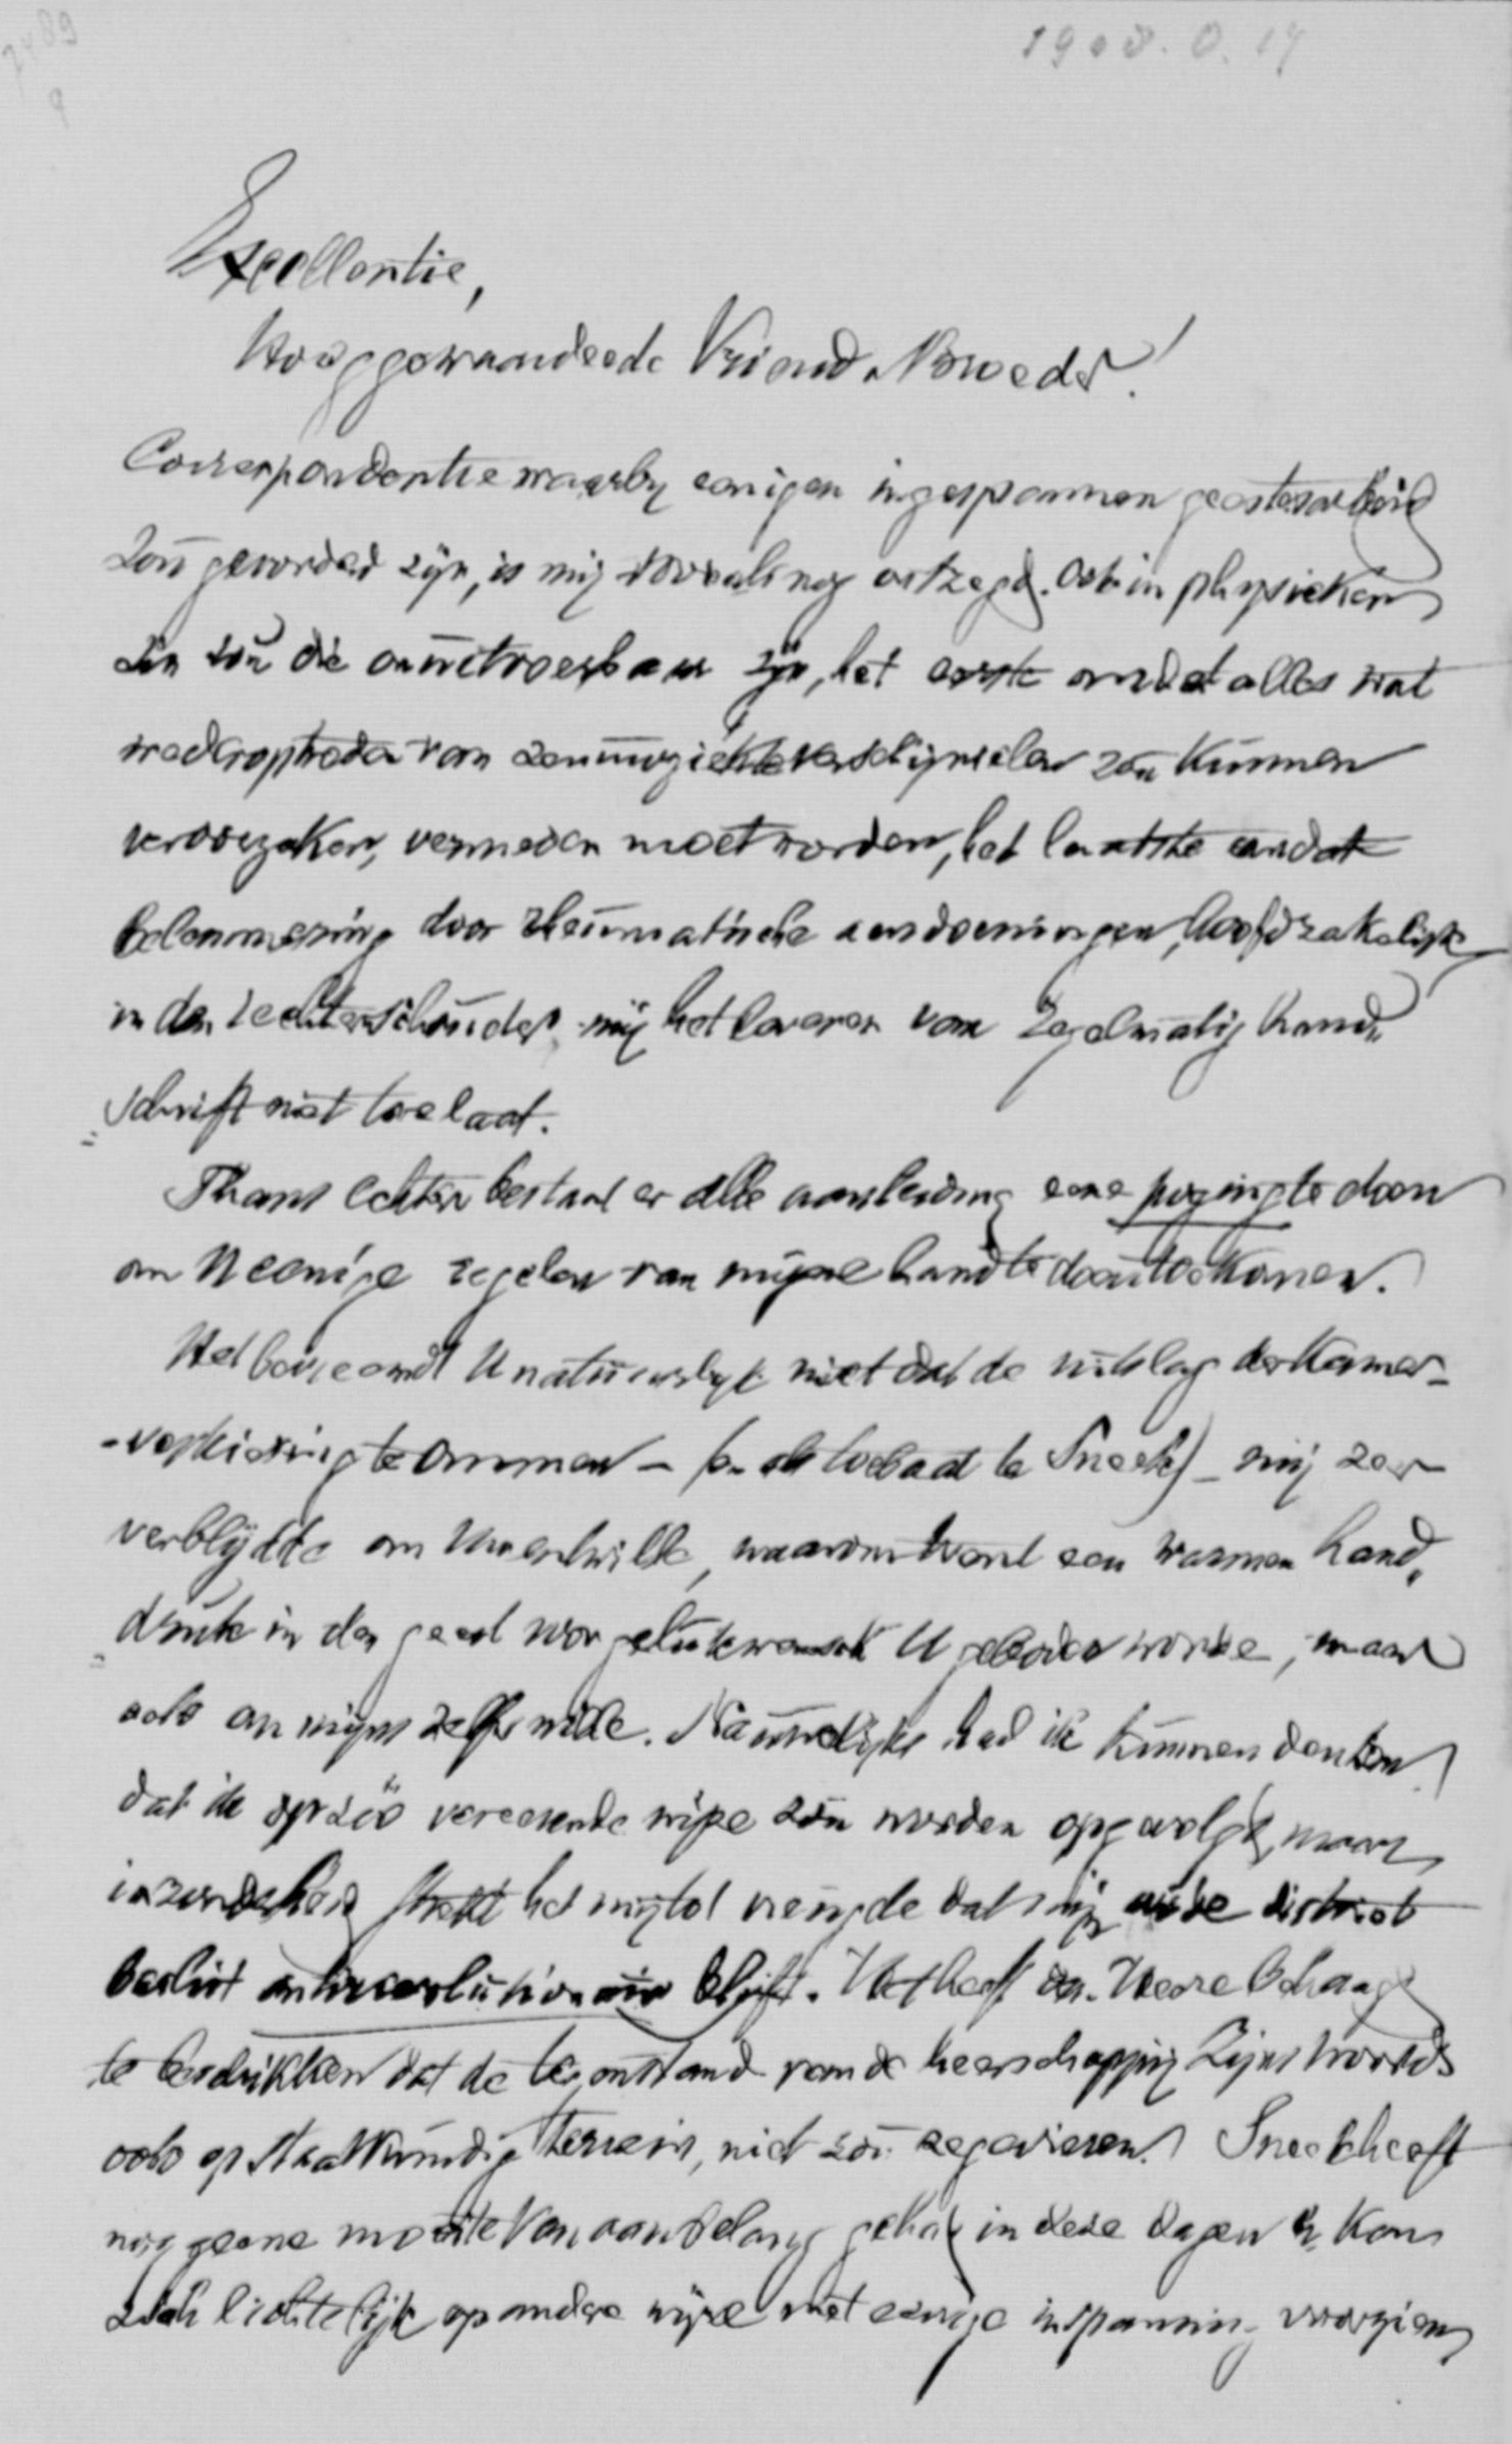 7489
9
1908.O.17
Excellentie,
Hooggewaardeerde Vriend & Broeder!
Correspondentie waarby eenigen ingespannen geestesarbeid
zou gevorderd zijn, is mij vooralsnog ontzegd. Ook in physieken
zin zou die onuitvoerbaar zijn, het eerste omdat alles wat
wederoptreden van zenuwziekteverschijnselen zou kunnen
veroorzaken, vermeden moet worden, het laatste omdat
belemmering door rheumatische aandoeningen, hoofdzakelijk
in den rechterschouder mij het leveren van regelmatig hand„
„schrift niet toelaat.
Thans echter bestaat er alle aanleiding eene poging te doen
om U eenige regelen van mijne hand te doen toekomen.
Het bevreemdt U natuurlijk niet dat de uitslag der Kamer-
-verkiezing te Ommen – (en als toebaat te Sneek) – mij zeer
verblijdde om Uwentwille, waarom want een warmen hand„
„druk in den geest voor gelukwensch U geboden worde, maar
ook om mijns zelfs wille. Nauwelijks had ik kunnen denken
dat ik op zóó vereerende wijze zou worden opgevolgd, maar
inzonderheid strekt het mij tot vreugde dat mijn oude district
beslist antirevolutionair blijft. Het heeft den Heere behaagd
te beschikken dat de tegenstand van de heerschappij Zijns Woords
ook op staatkundig terrein, niet zou zegevieren. Sneek heeft
nog geene moeite van aanbelang gehad in deze dagen & kan
zich lichtelijk op andere wijze met eenige inspanning voorzien